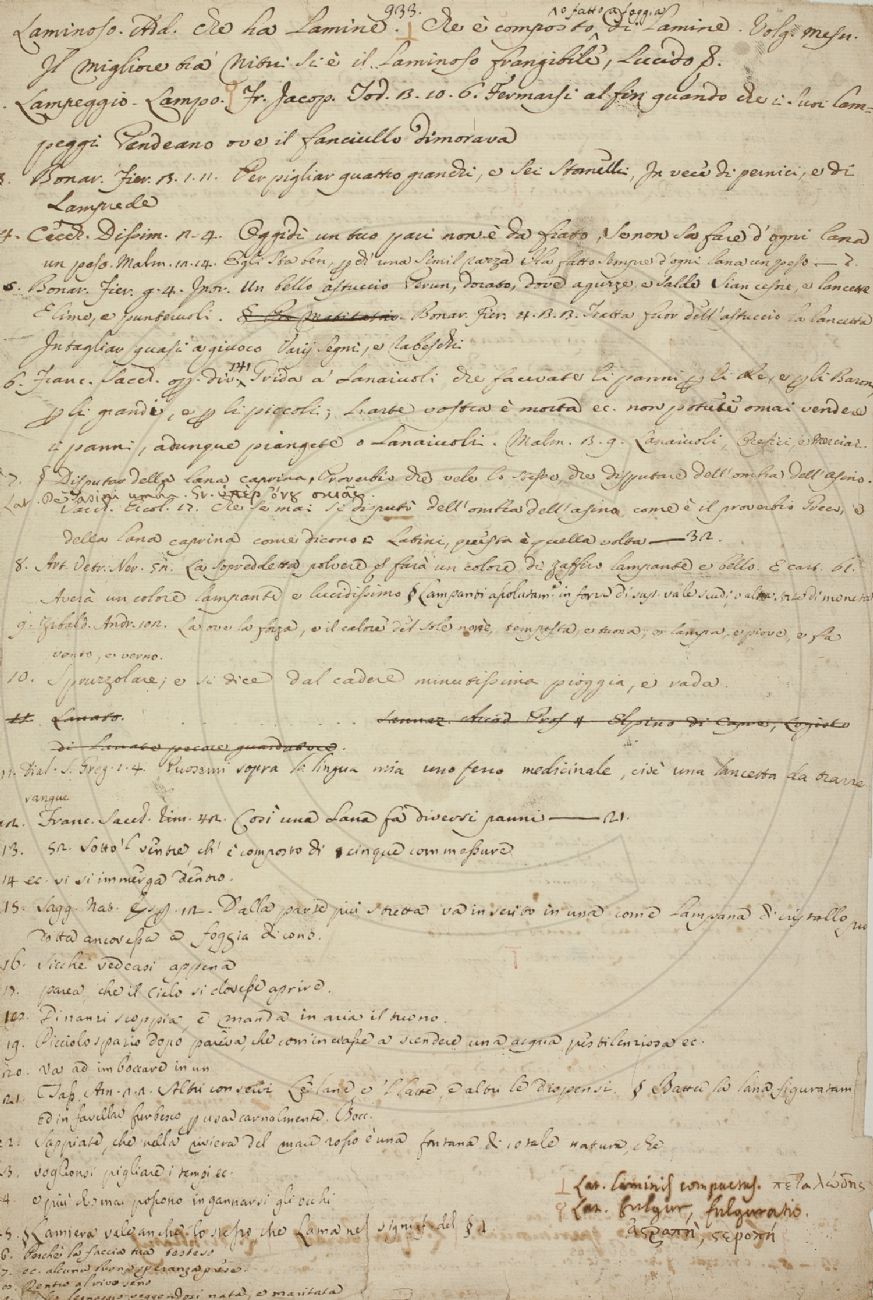 933.
o fatto a foggia
Laminoso. Add. che ha Lamine. Che è composto di Lamine. Volg. Mesu.
Il migliore tra' Nitri si è il Laminoso frangibile, Lucido §.
Lampeggio. Lampo. Fr. Jacop. Tod. 13. 10. 6. Fermarsi al fin quando che i suoi lam=
peggi Pendeano ove il fanciullo dimorava
3. Bonar. Fier. 3. 1. 11. Per pigliar quattro granchi, e sei Stornelli, In vece di pernici, e di
Lamprede
4. Cecch. Dissim. 2. 4. Oggidì un tuo pari non è da fiato, Se non sa fare d'ogni lana
un peso. Malm. 12. 14. Egli sta ben, di una simil razza Ha fatto sempre d'ogni lana un peso — 2.
5. Bonar. Fier. g. 4. Intr. Un bello astuccio dorato, dov'è e lancette
E lime, e punteruoli. Bonar. Fier. 4. Tratta fuor dell'astuccio la lancetta
Intagliar quasi a giuoco Varij segni, e rabeschi
6. Franc. Sacch. op. div. 141 Grida a' Lanaiuoli che facevate li panni p li Re, e p li Baron,
p li grandi, e p li piccoli; L'arte vostra è morta ec. non potete omai vendere
i panni, adunque piangete o Lanaiuoli. Malm. 3. 9. Lanaiuoli,
7. § Disputar della lana caprina, Proverbio che vale lo stesso, che disputare dell'ombra dell'asino.
Lat. De asini umbra. Gr. ὑπὲρ ὄνου σκιᾶς.
Che se mai si disputò dell'ombra dell'asino come è il proverbio Greco, e
della lana caprina come dicono i Latini, questa è quella volta — 32.
8. Art. Vetr. Ner. 52. La sopraddetta polvere farà un colore di zaffiro lampante e bello. E cart. 61.
Averà un colore lampante e lucidissimo § Lampanti assolutam. in forza di sust. vale scudi, o altra di moneta
9. Zibald. Andr. 102. La ove la forza, e il calore del sole tempesta, e tuona, or lampa, e piove, e fa
vento, e verno.
10. Spruzzolare; e si dice dal cadere minutissima pioggia, e rada.
11. Lanato. Sannaz. Arcad. Pros. 4 Elpino di Capre, Logisto
di Lanate pecore guardatore.
11. Dial. S. Greg. 1. 4. Puosemi sopra la lingua mia uno ferro medicinale, cioè una lancetta da trarre
sangue
12. Franc. Sacch. Rim. 42. Così una Lana fa diversi panni — 21.
13. 52. Sotto 'l ventre, ch' è composto di cinque commessure
14 ec. vi si immerga dentro.
15. Sagg. Nat. Esp. 12. Dalla parte più stretta va inserito in una come Lampana di cristallo ri
dotta ancor essa a foggia di cono.
16. Sicchè vedeasi appena
17. parea, che il Cielo si dovesse aprire.
18. Dinanzi scoppia, e manda in aria il tuono.
19. Picciolo spazio dopo pareva che cominciasse a scendere una acqua pestilenziosa ec.
20. va ad imboccare in un
21. Tass. Am. 1. 1. Altri conservi Le lane e 'l latte, e altri le dispensi. § Batter la lana figuratam.
ed in favella furbesca p usar carnalmente. Bocc.
22. Sappiate, che nella riviera del mare rosso è una fontana di cotale natura, che
23. voglionsi pigliare i tempi ec.
24. e più che mai possono ingannarsi gli occhi
25. § Lamiera vale anche lo stesso che Lama nel signif. del § 1.
6. Perchè la faccia tua testeso
7. ec. alcuna buona speranza prese.
8. Dentro al vivo seno
veggendosi nata, e maritata
Lat. laminis compactus. πεταλώδης
Lat. fulgur, fulguratio.
ἀστραπή, στεροπή